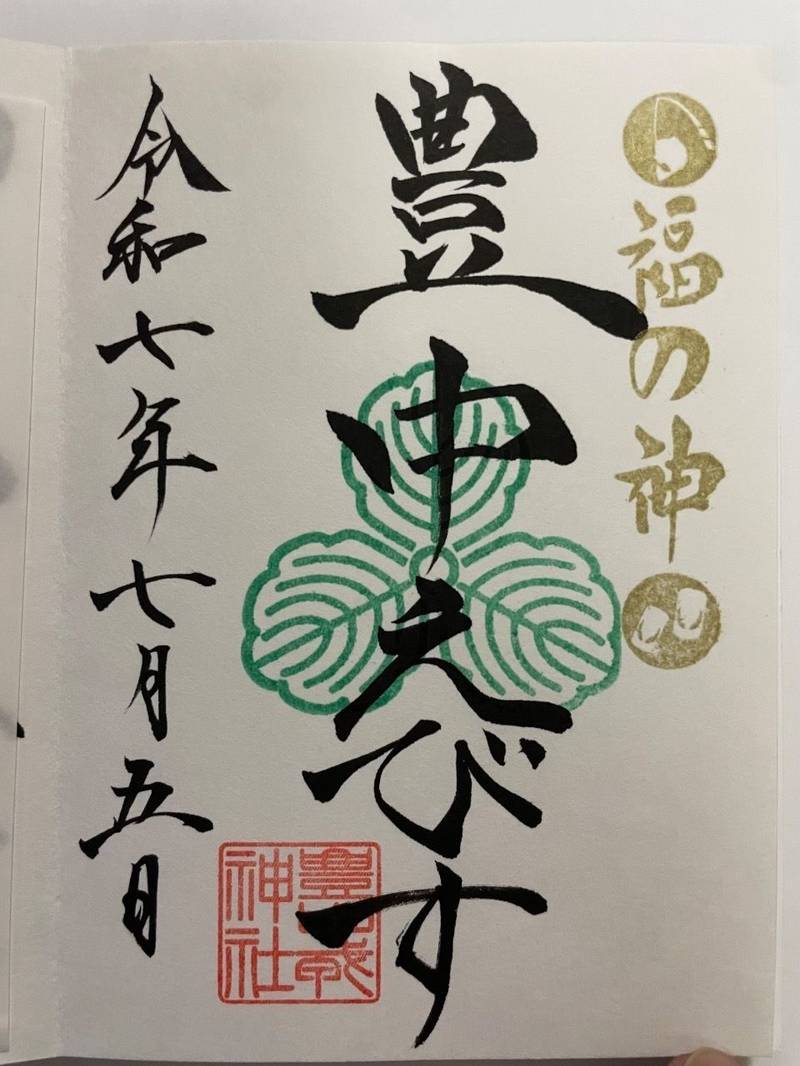 福の神
豊中えびす
豊中戎
神社
令和七年七月五日